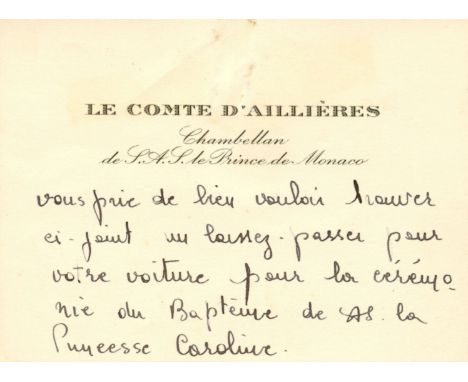 LE COMTE D'AILLIÈRES
Chambellan
de S.A.S. le Prince de Monaco
vous prie de bien vouloir trouver
ci-joint un laissez-passer pour
votre voiture pour la cérémo-
nie du Baptême de AS. la
Princesse Caroline.